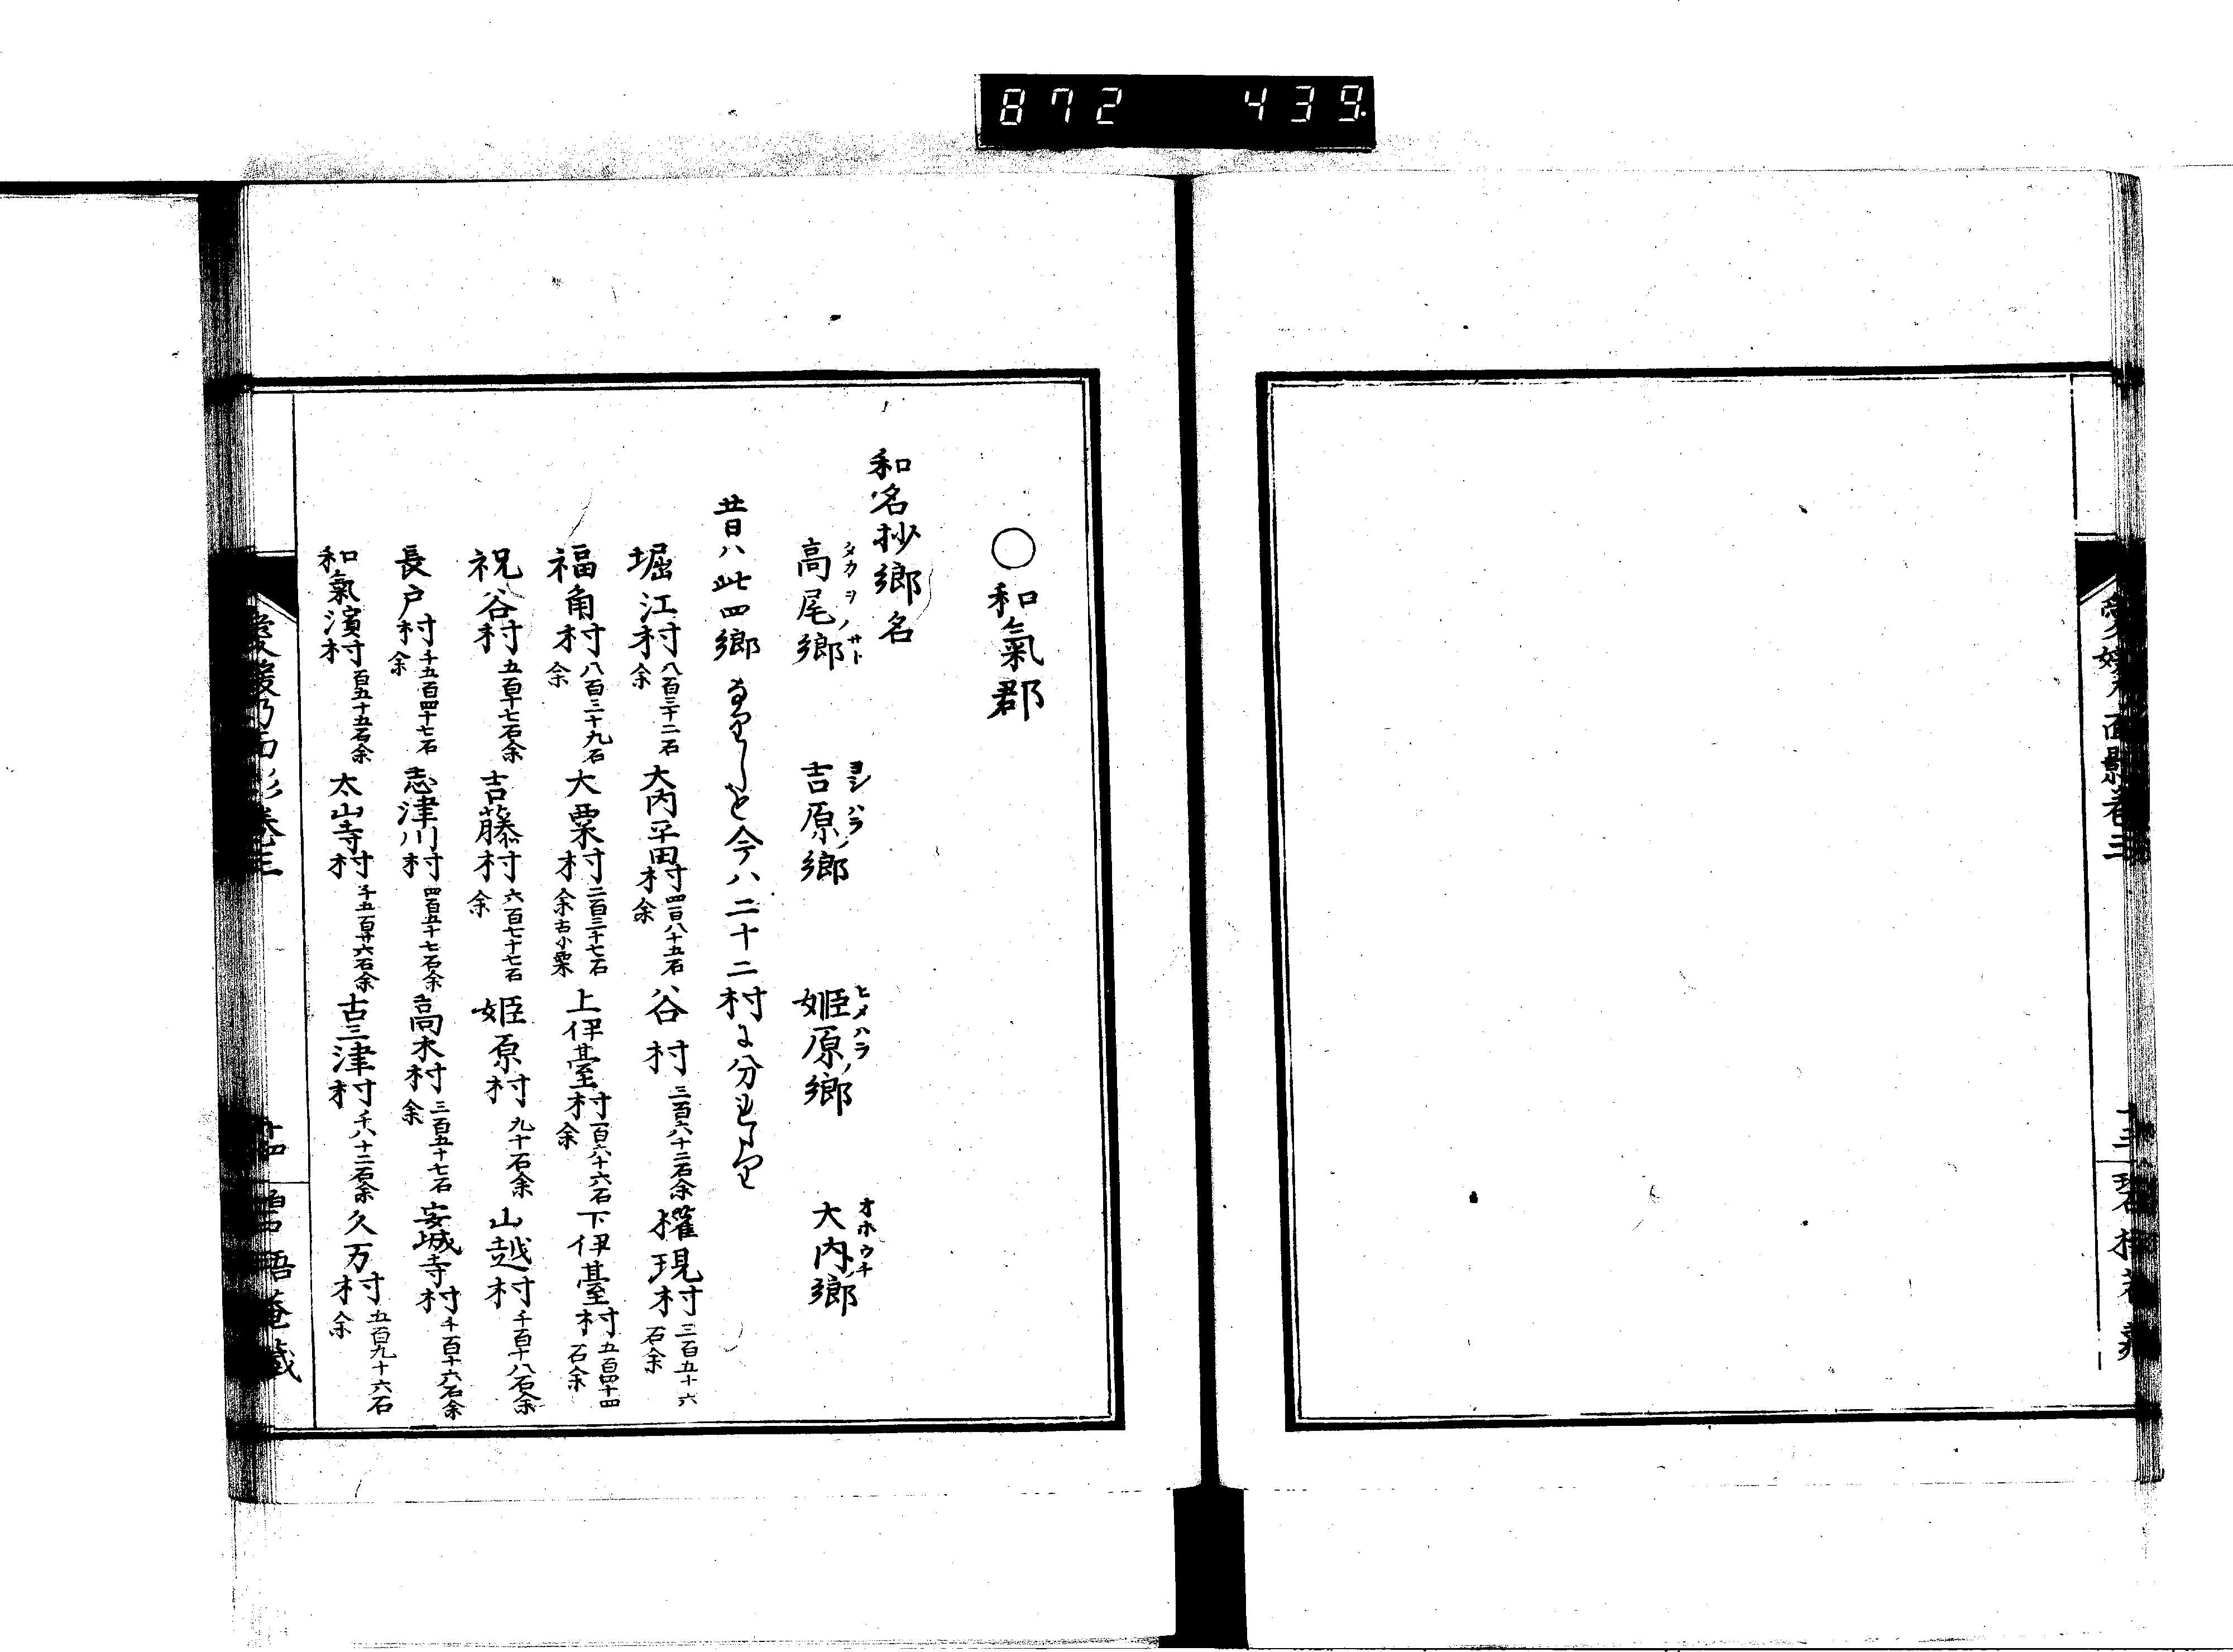 872 439
愛媛乃面影巻三
十三
○和氣郡
和名抄郷名
高尾郷 タカヲノサト 吉原郷 ヨシハラノ 姫原郷 ヒメハラノ 大内郷 オホウチノ
昔ハ此四郷なりしを今ハ二十二村に分れたり
堀江村 八百三十二石余 大内平田村 四百八十五石余 谷村 三百六十二石余 権現村 三百五十六石余
福角村 八百三十九石余 大粟村 二百三十七石余古小粟 上伊臺村 百六十六石余 下伊臺村 五百四十四石余
祝谷村 五百十七石余 吉藤村 六百七十七石余 姫原村 九十石余 山越村 千百十八石余
長戸村 千五百四十七石余 志津川村 四百五十七石余 高木村 三百五十七石余 安城寺村 千百十六石余
和氣濱村 百五十五石余 太山寺村 千五百廿六石余 古三津村 千八十二石余 久万村 五百九十六石余
愛媛乃面影巻三
十四